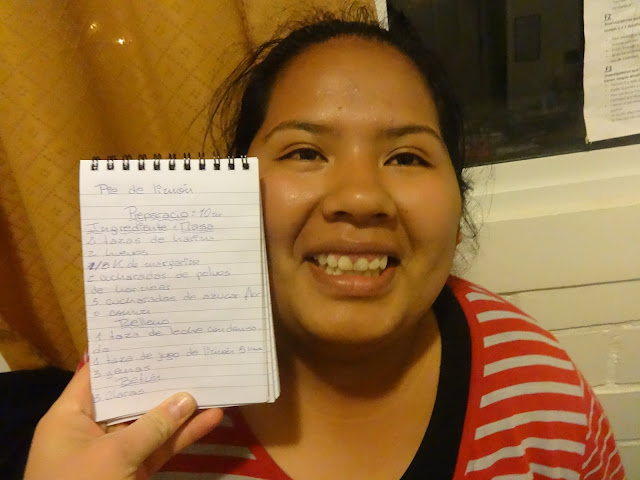 Pie de limón
Preparacio: 10 m
Ingrediente: Masa
2 tazas de harina
2 huevos
1/8 K de margarina
2 cucharadas de polvos
de horneas
5 cucharadas de azucar flor
o comun
Relleno
1 taza de leche condensa
da
1 taza de jugo de limón 5
3 yemas
Batido
5 claras